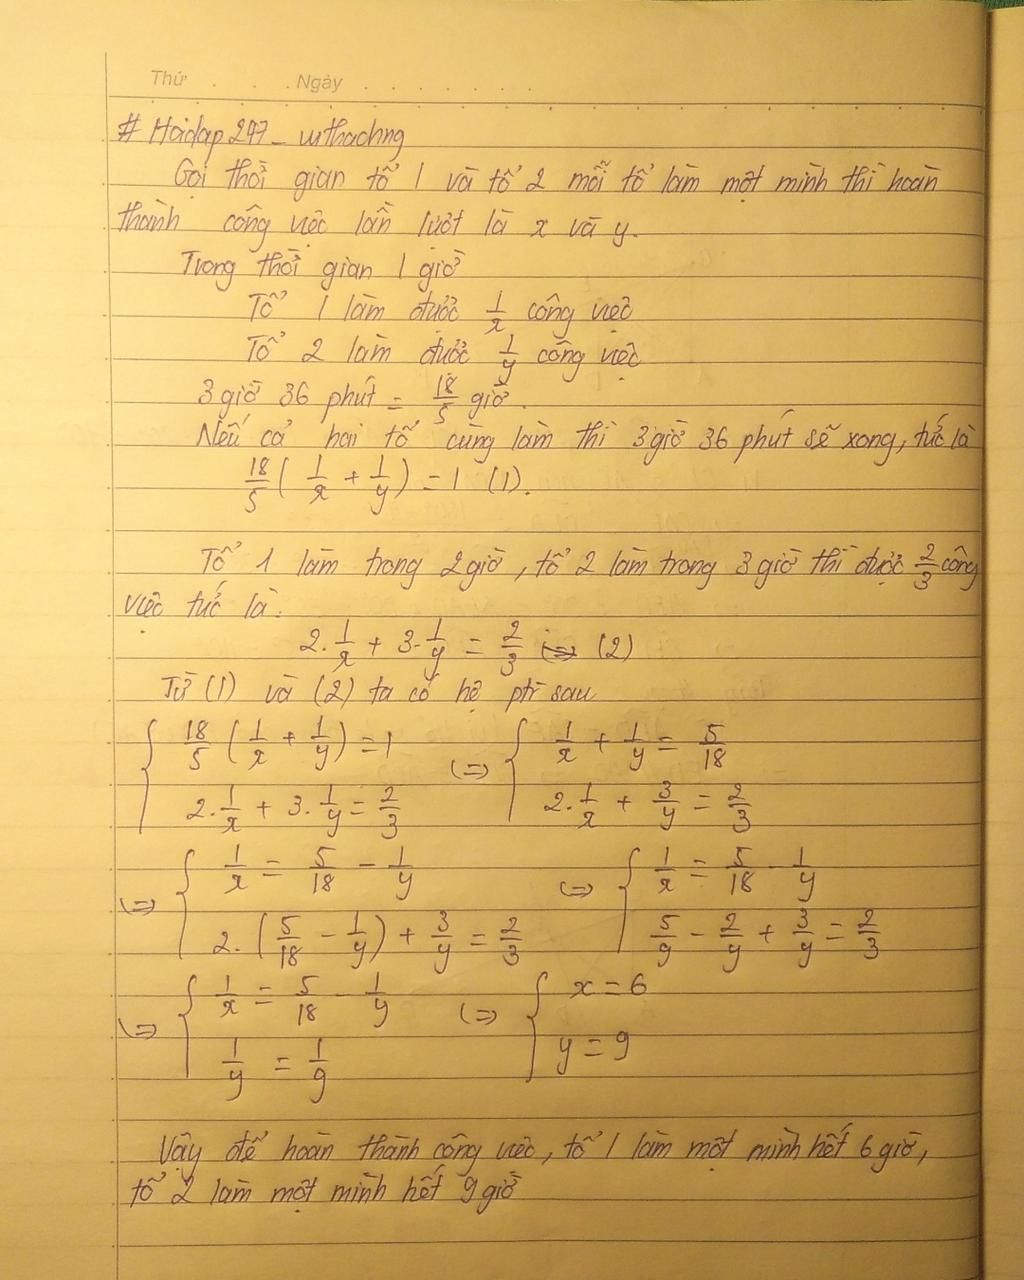 Thứ . . . . Ngày . . . . . . .
# Hoidap247_
Gọi thời gian tổ 1 và tổ 2 mỗi tổ làm một mình thì hoàn
thành công việc lần lượt là x và y.
Trong thời gian 1 giờ
Tổ 1 làm được 1/x công việc
Tổ 2 làm được 1/y công việc
3 giờ 36 phút = 18/5 giờ.
Nếu cả hai tổ cùng làm thì 3 giờ 36 phút sẽ xong, tức là
18/5 ( 1/x + 1/y ) = 1 (1).
Tổ 1 làm trong 2 giờ, tổ 2 làm trong 3 giờ thì được 2/3 công
việc tức là:
2. 1/x + 3. 1/y = 2/3 (2)
Từ (1) và (2) ta có hệ ptr sau
{ 18/5 ( 1/x + 1/y ) = 1 (=) { 1/x + 1/y = 5/18
2. 1/x + 3. 1/y = 2/3 2. 1/x + 3/y = 2/3
(=) { 1/x = 5/18 - 1/y (=) { 1/x = 5/18 - 1/y
2. ( 5/18 - 1/y ) + 3/y = 2/3 5/9 - 2/y + 3/y = 2/3
(=) { 1/x = 5/18 - 1/y (=) { x = 6
1/y = 1/9 y = 9
Vậy để hoàn thành công việc, tổ 1 làm một mình hết 6 giờ,
tổ 2 làm một mình hết 9 giờ